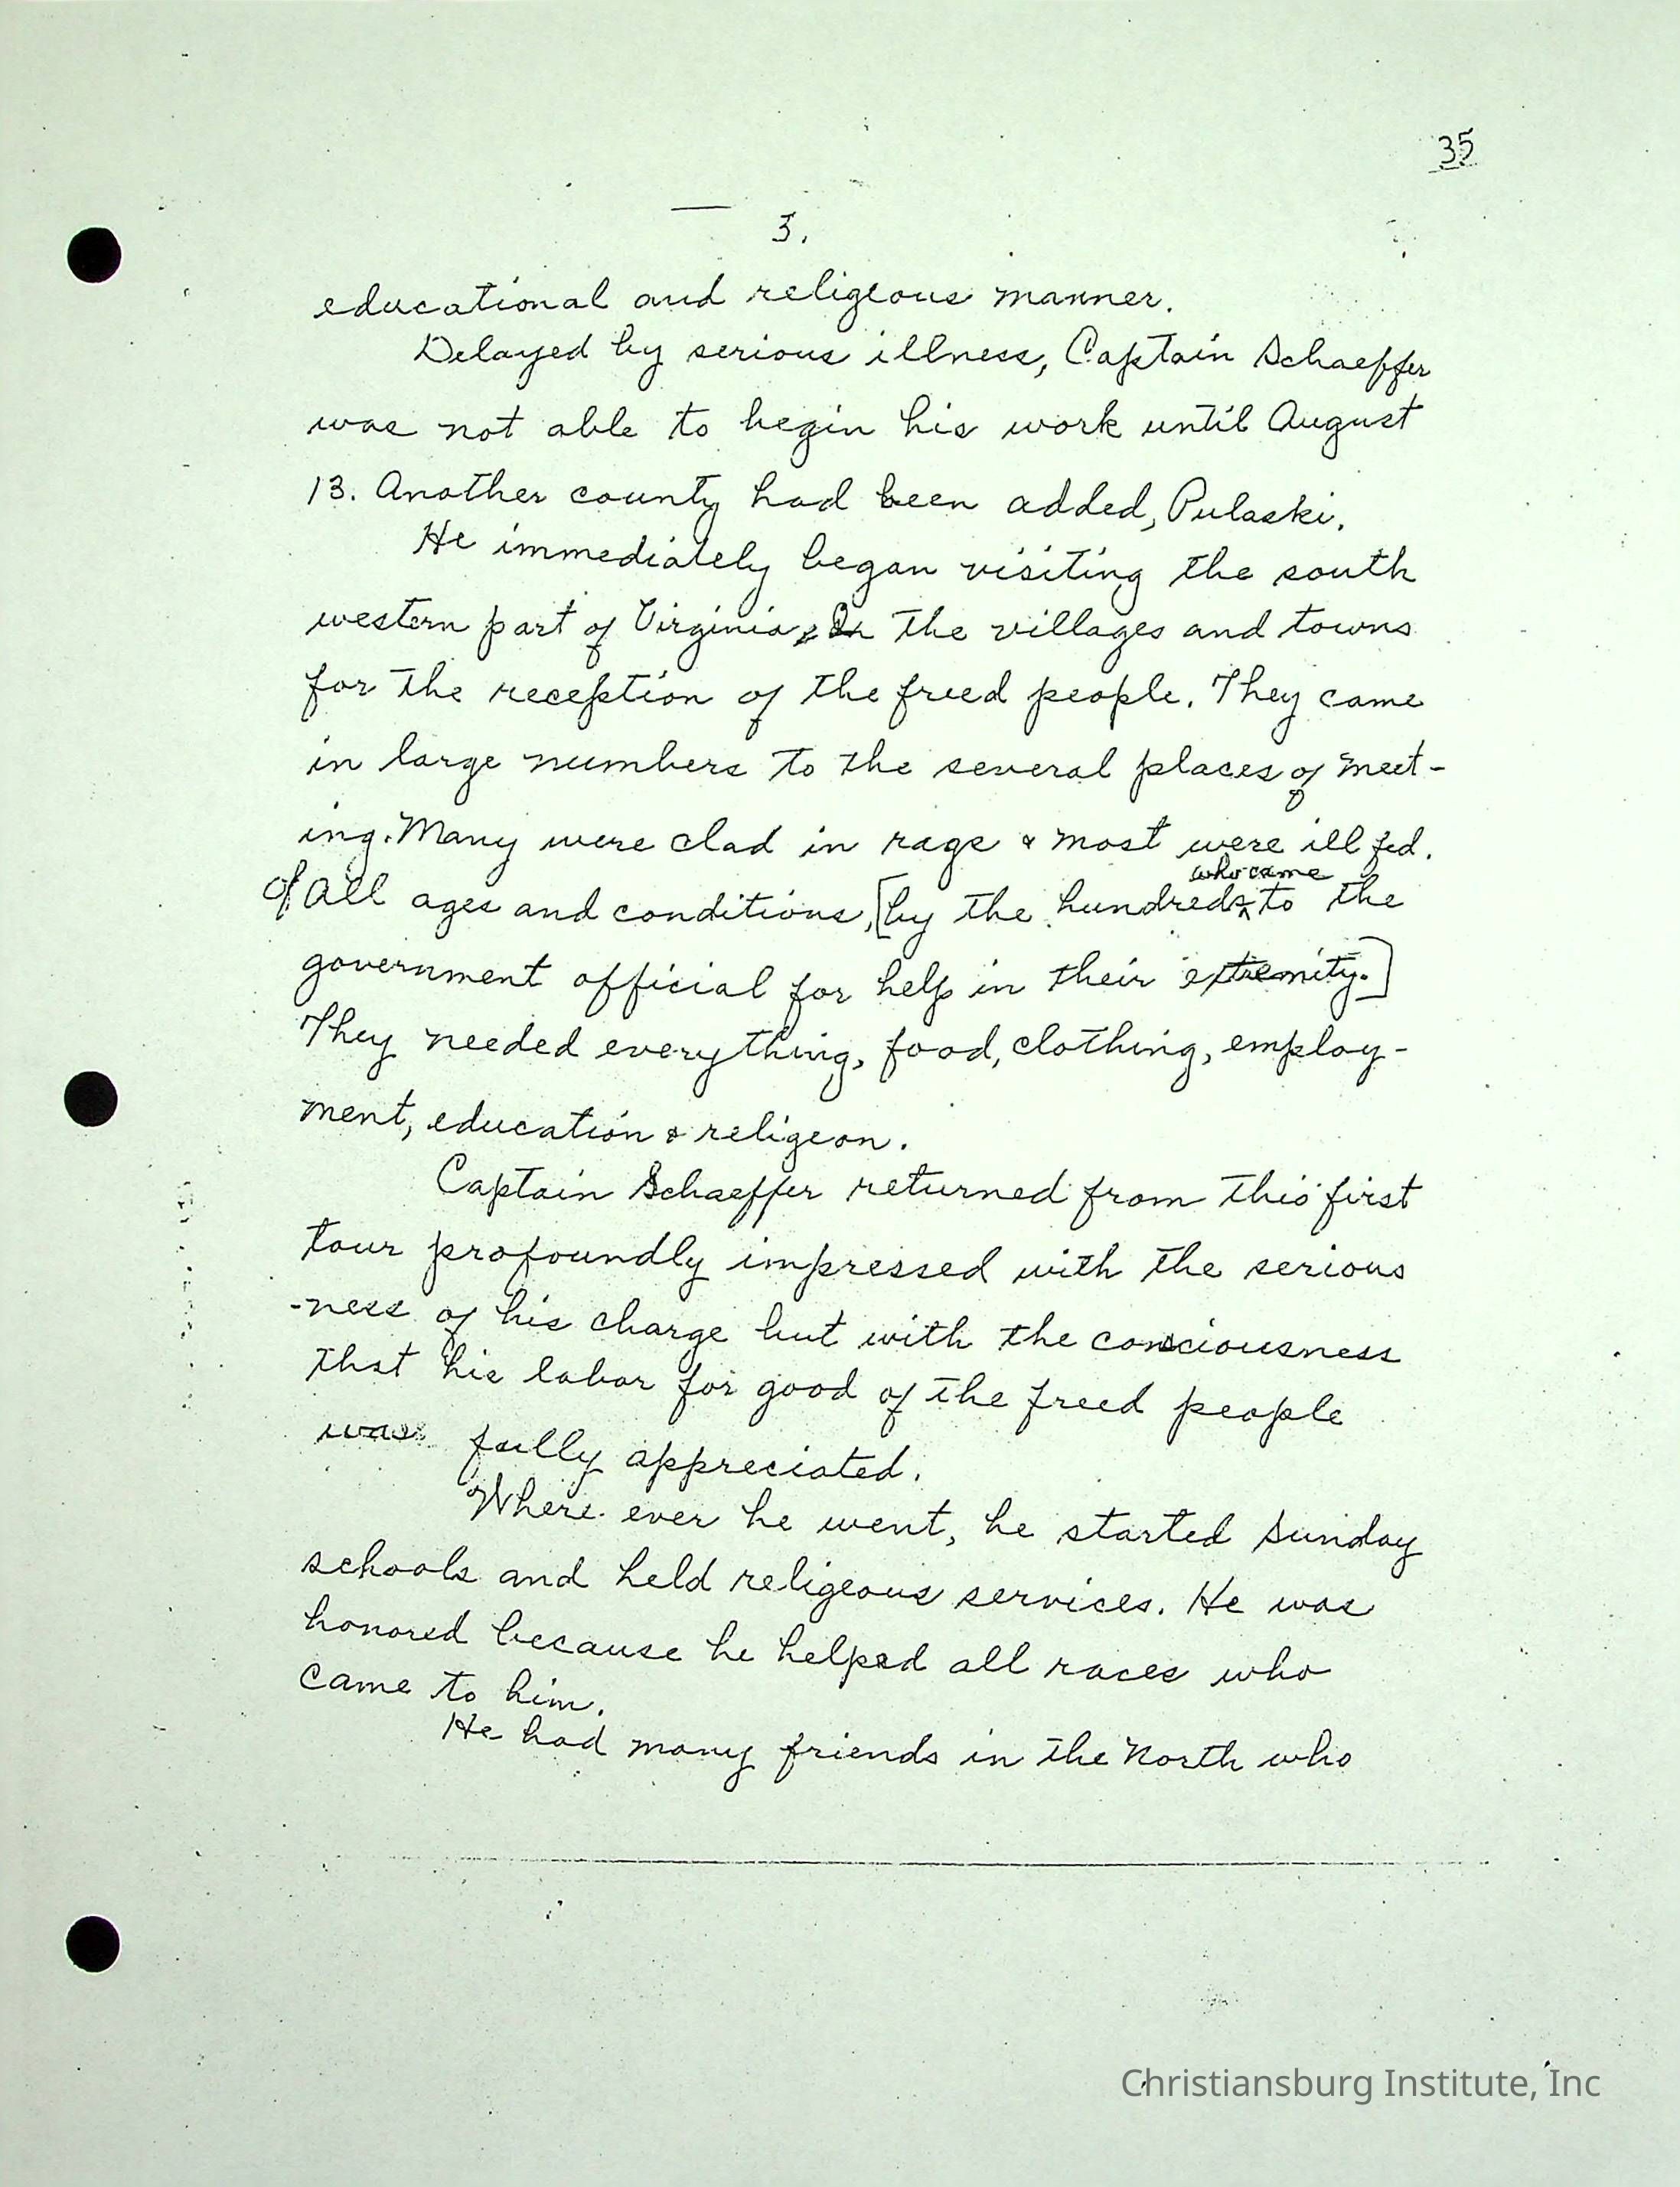 35
3.
educational and religeous manner.
Delayed by serious illness, Captain Schaeffer
was not able to begin his work until August
13. Another county had been added, Pulaski.
He immediately began visiting the south
western part of Virginia, In the villages and towns
for the reception of the freed people. They came
in large numbers to the several places of meet-
ing. Many were clad in rags & most were ill fed.
who came
Of All ages and conditions, [by the hundreds ^ to the
government official for help in their extremity.]
They needed everything, food, clothing, employ-
ment, education & religeon.
Captain Schaeffer returned from this first
tour profoundly impressed with the serious
-ness of his charge but with the consciousness
that his labor for good of the freed people
was fully appreciated.
Where ever he went, he started Sunday
schools and held religeous services. He was
honored because he helped all races who
came to him.
He had many friends in the North who
Christiansburg Institute, Inc